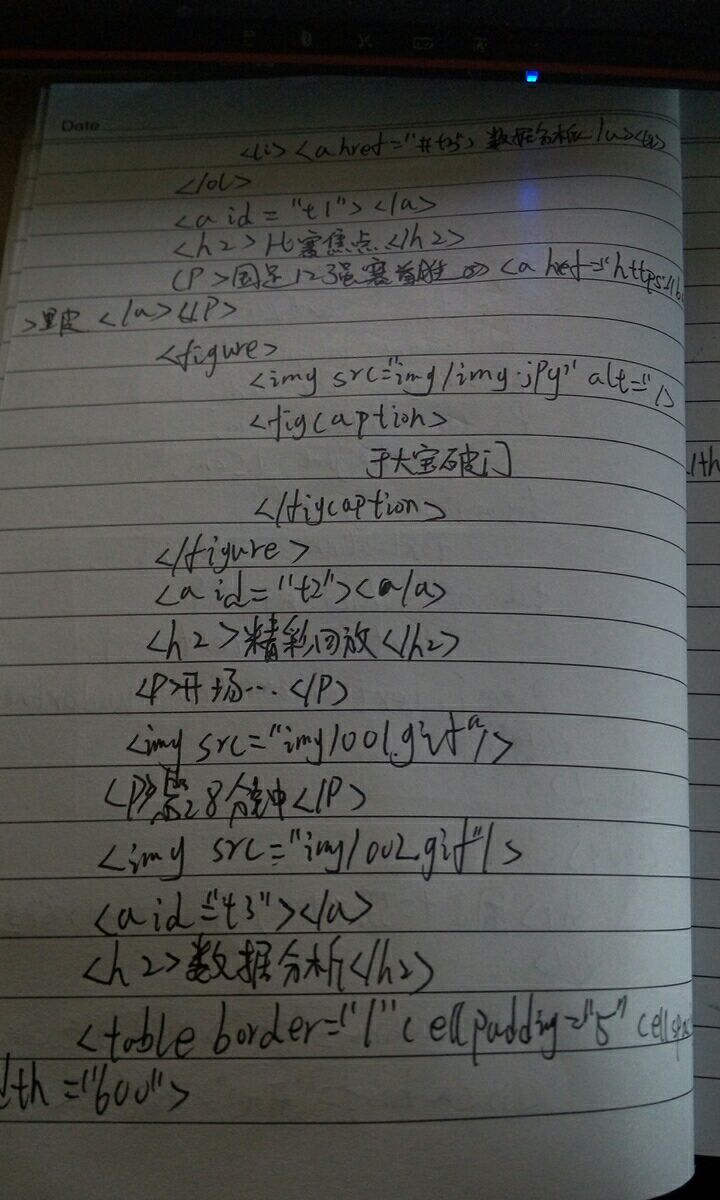 Date
<li><a href="#t3">数据分析</a></li>
</ol>
<a id="t1"></a>
<h2>比赛焦点</h2>
<P>国足12强赛首胜 <a href="https://b
>里皮</a></P>
<figure>
<img src="img/img.jpg" alt="/>
<figcaption>
于大宝破门
</figcaption>
</figure>
<a id="t2"><a/a>
<h2>精彩回放</h2>
<P>开场…</P>
<img src="img/001.gif"/>
<P>28分钟</P>
<img src="img/002.gif"/>
<a id="t3"></a>
<h2>数据分析</h2>
<table border="1" cellpadding="5" cellspa
th="600">
/th